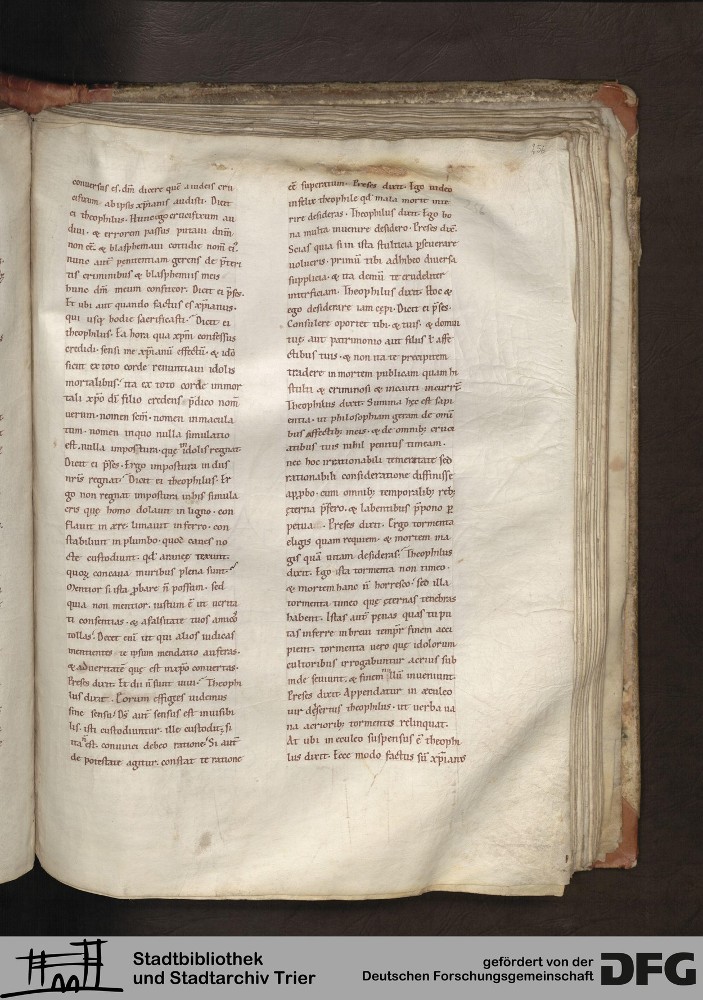 156
conuersus es. dm̄ dicere quē audeis cru
cifixum ab ipsis xp̄ianis audisti. Dixit
ei theophilus. Hunc ego crucifixum au
diui. & errorem passus putaui dnm̄
non eē. & blasphemaui cottidie nom̄ ei᷒.
nunc aut̄ penitentiam gerens de p̄teri
tis criminibus & blasphemiis meis
hunc dm̄ meum confiteor. Dicit ei p̄ses.
Et ubi aut quando factus es xp̄ianus.
qui usq; hodie sacrificasti. Dicit ei
theophilus. Ea hora qua xp̄m confessus
credidi. sensi me xp̄ianū effectū. & idō
sicut ex toto corde renuntiaui idolis
mortalibus. ita ex toto corde inmor
tali xp̄o dī filio credens p̄dico nom̄
uerum. nomen sc̄m. nomen inmacula
tum. nomen in quo nulla simulatio
est. nulla impostura. quę in idolis regnat
Dicit ei p̄ses. Ergo impostura in diis
nr̄is regnat. Dicit ei theophilus. Er
go non regnat impostura in his simula
cris quę homo dolauit in ligno. con
flauit in ære. limauit in ferro. con
stabiliuit in plumbo. quos caues no
cte custodiunt. qd̄ araneę texunt.
quoȝ concaua muribus plena sunt.
Mentior si ista p̄bare n̄ possum. sed
quia non mentior. iustum ē ut uerita
ti consentias. & a falsitate tuos amicos
tollas. Decet enī ut qui alios iudicas
mentientes te ipsum mendatio auferas.
& ad ueritatē quę est in xp̄o conuertas.
Preses dixit. Et dii n̄ sunt uiui. Theophi
lus dixit. Eorum effigies uidemus
sine sensu. Ds̄ aut̄ sensus est inuisibi
lis. isti custodiuntur. ille custodit. si
ita n̄ est. conuinci debeo ratione. Si aut̄
de potestate agitur. constat te ratione
eē superatum. Preses dixit. Ego uideo
infelix theophile qd̄ mala morte inte
rire desideras. Theophilus dixit. Ego bo
na multa inuenire desidero. Preses dix̄.
Scias quia si in ista stultitia p̄seuerare
uolueris. primū tibi adhibeo diuersa
supplicia. & ita demū te crudeliter
interficiam. Theophilus dixit. Hoc &
ego desiderare iam cępi. Dicit ei p̄ses.
Consulere oportet tibi. & tuis. & domui
tuę aut patrimonio aut filiis l̄ affe
ctibus tuis. & non ita te precipitem
tradere in mortem publicam quam hi
stulti & criminosi & incauti incurrt̄.
Theophilus dixit. Summa hęc est sapi
entia. ut philosopham geram de omī
bus affectib; meis. & de omnib; cruci
atibus tuis nihil penitus timeam.
nec hoc irrationabili temeritate sed
rationabili consideratione diffinisse
me p̄bo. cum omnib; temporalib; reb;
ęterna p̄fero. & labentibus p̄pono p̄
petua. Preses dixit. Ergo tormenta
eligis quam requiem. & mortem ma
gis quā uitam desideras. Theophilus
dixit. Ego ista tormenta non timeo.
& mortem hanc n̄ horresco. sed illa
tormenta timeo quę ęternas tenebras
habent. Istas aut̄ pęnas quas tu pu
tas inferre in breui tempr̄ finem acci
pient. tormenta uero quę idolorum
cultoribus irrogabuntur acrius sub
inde seuiunt. & finem nullū inueniunt.
Preses dixit. Appendatur in æculeo
uir disertus theophilus. ut uerba ua
na acriorib; tormentis relinquat.
At ubi in eculeo suspensus ē theophi
lus dixit. Ecce modo factus sū xp̄ianus
Stadtbibliothek
und Stadtarchiv Trier
gefördert von der
Deutschen Forschungsgemeinschaft
DFG